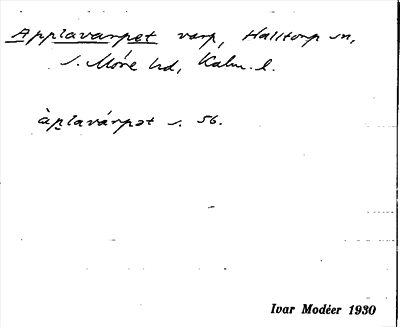 Applavarpet varp, Halltorp sn,
s. Möre hd, Kalm. l.
àplavárpət s. 56.
Ivar Modéer 1930